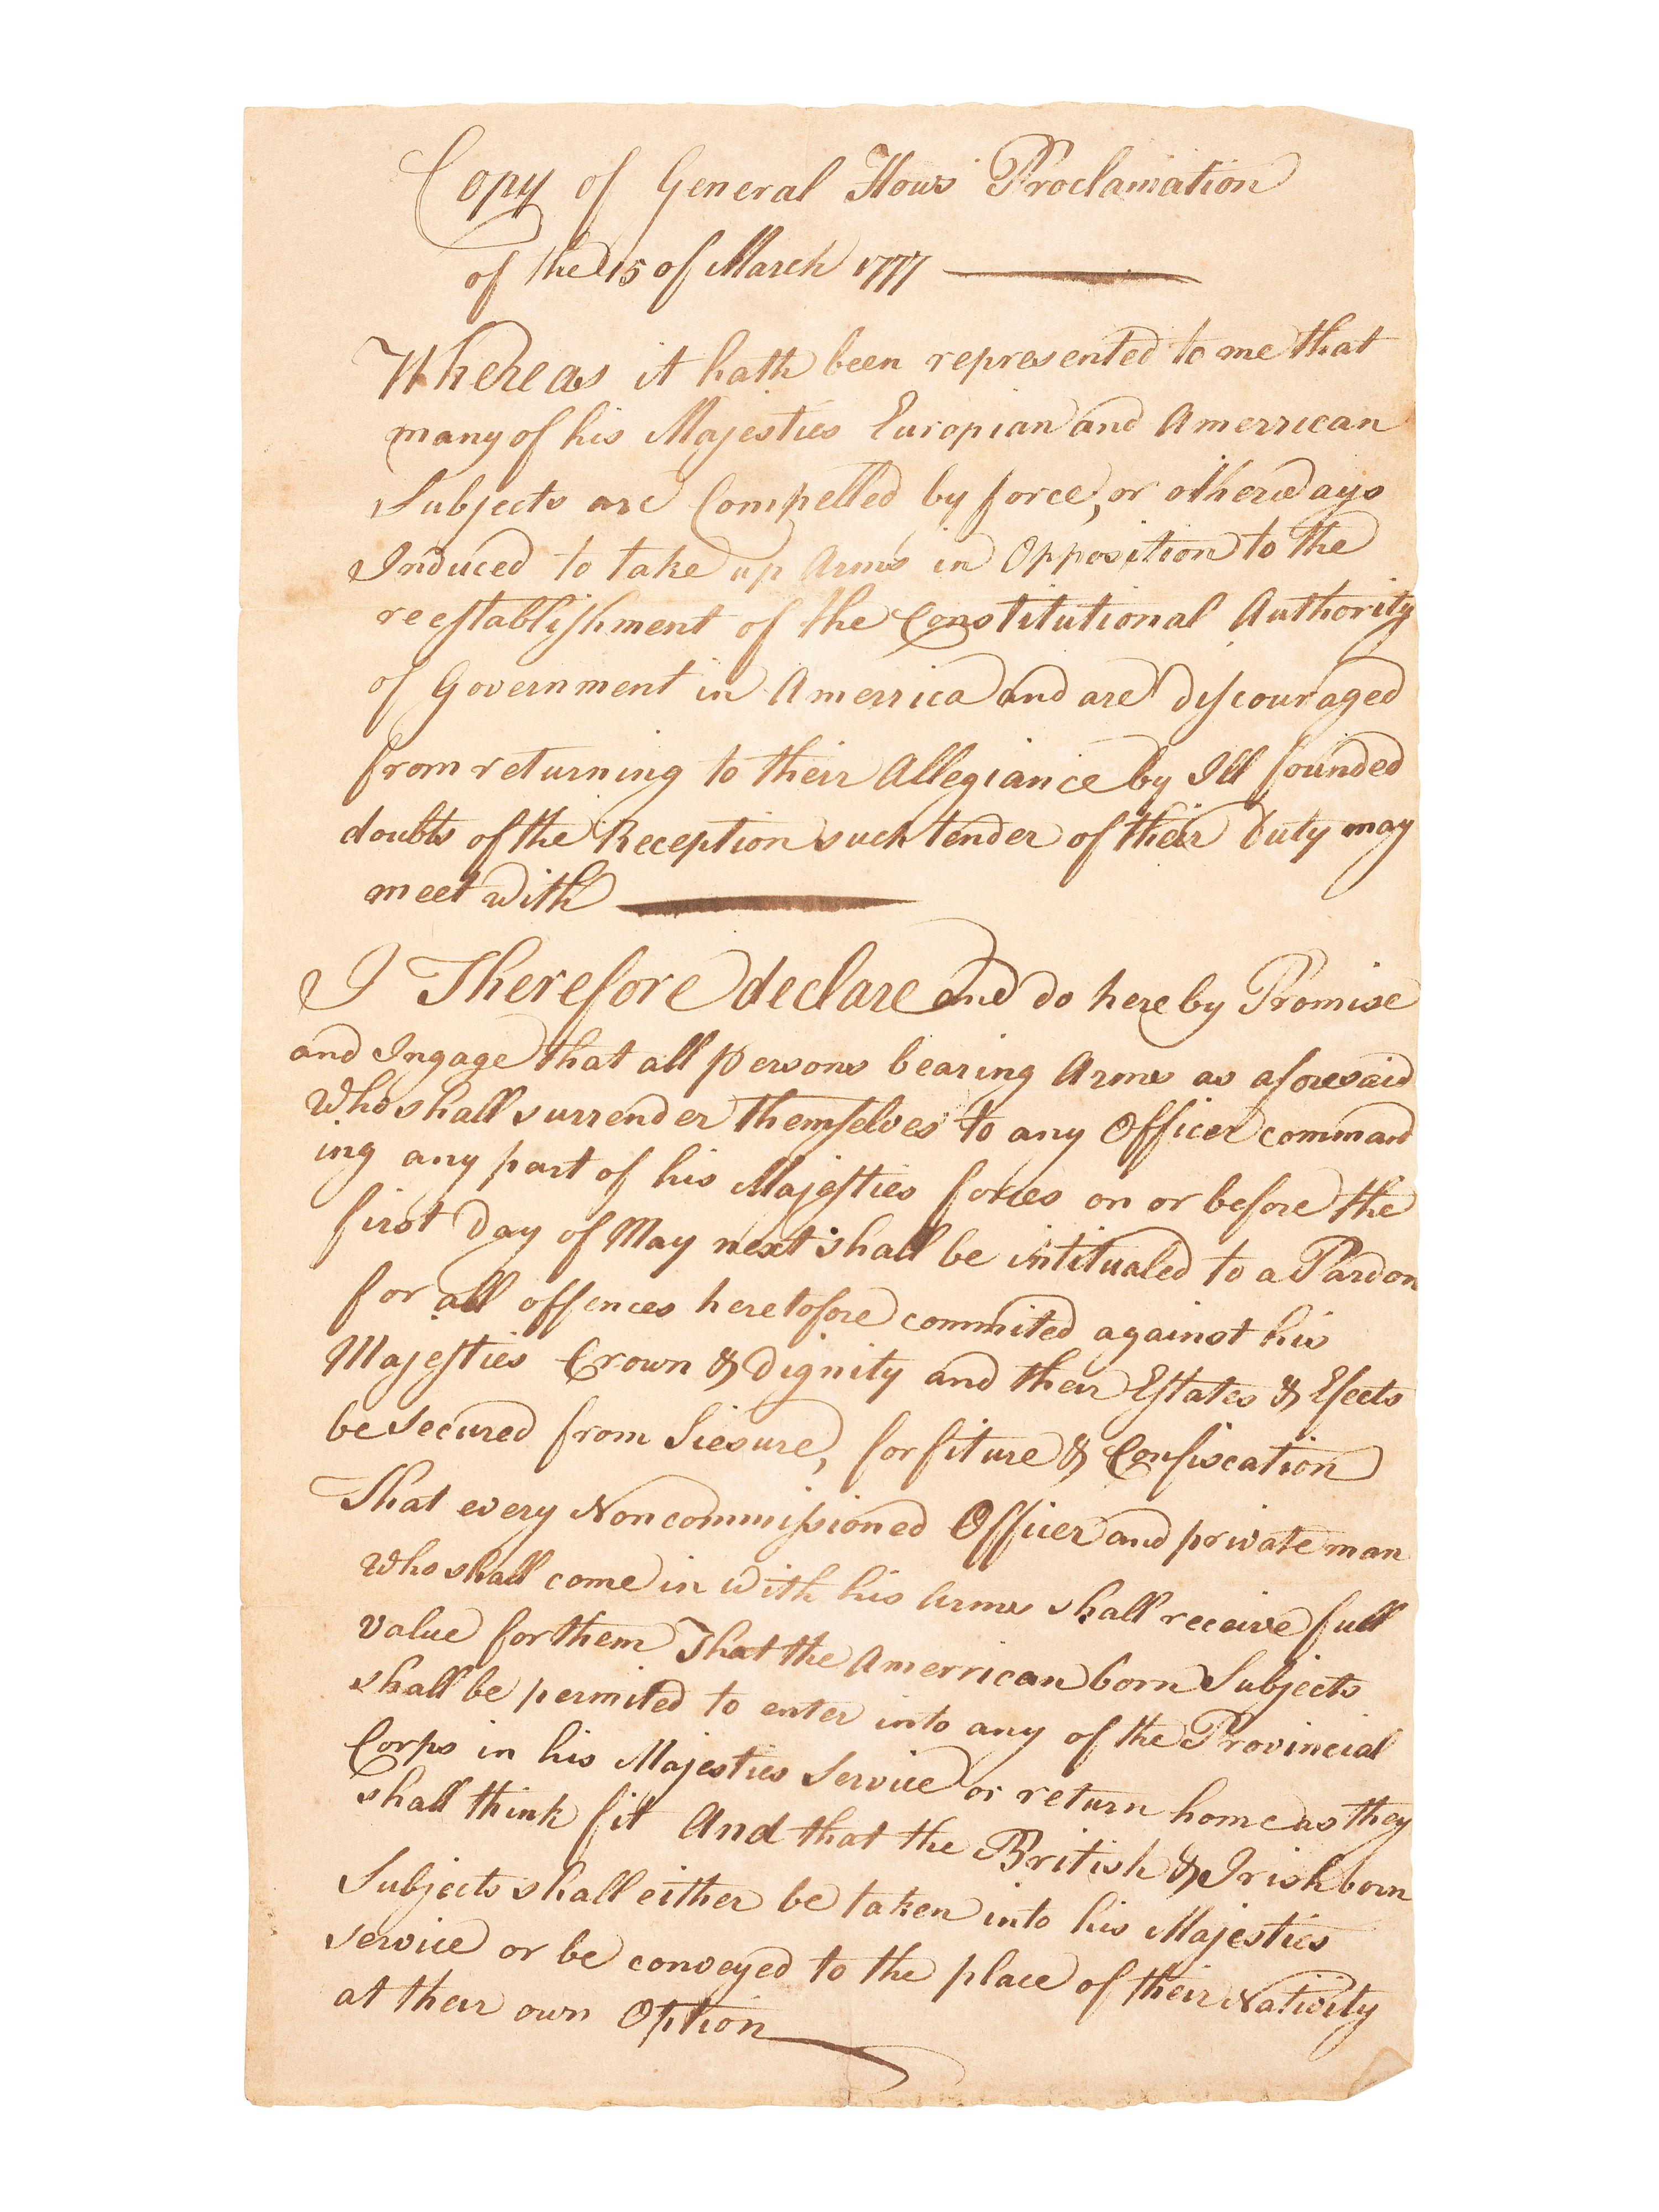 Copy of General Hows Proclamation
of the 15 of March 1777
Whereas it hath been represented to me that
many of his Majesties Europian and Amerrican
Subjects are Compelled by force, or otherways
Induced to take up Arms in Opposition to the
reestablishment of the Constitutional Authority
of Government in Amerrica and are discouraged
from returning to their Allegiance by Ill founded
doubts of the Reception such tender of their Duty may
meet with
I Therefore declare and do hereby Promise
and Ingage that all persons bearing Arms as aforesaid
Who shall surrender themselves to any Officer command
ing any part of his Majesties forces on or before the
first Day of May next shall be intitualed to a Pardon
for all offences heretofore commited against his
Majesties Crown & Dignity and their Estates & Efects
be Secured from Siesure, forfiture & Confiscation
That every Noncommissioned Officer and private man
Who shall come in with his Arms shall receive full
value for them That the Amerrican born Subjects
shall be permited to enter into any of the Provincial
Corps in his Majesties Service or return home as they
shall think fit And that the British & Irish born
Subjects shall either be taken into his Majesties
service or be conveyed to the place of their Nativity
at their own Option